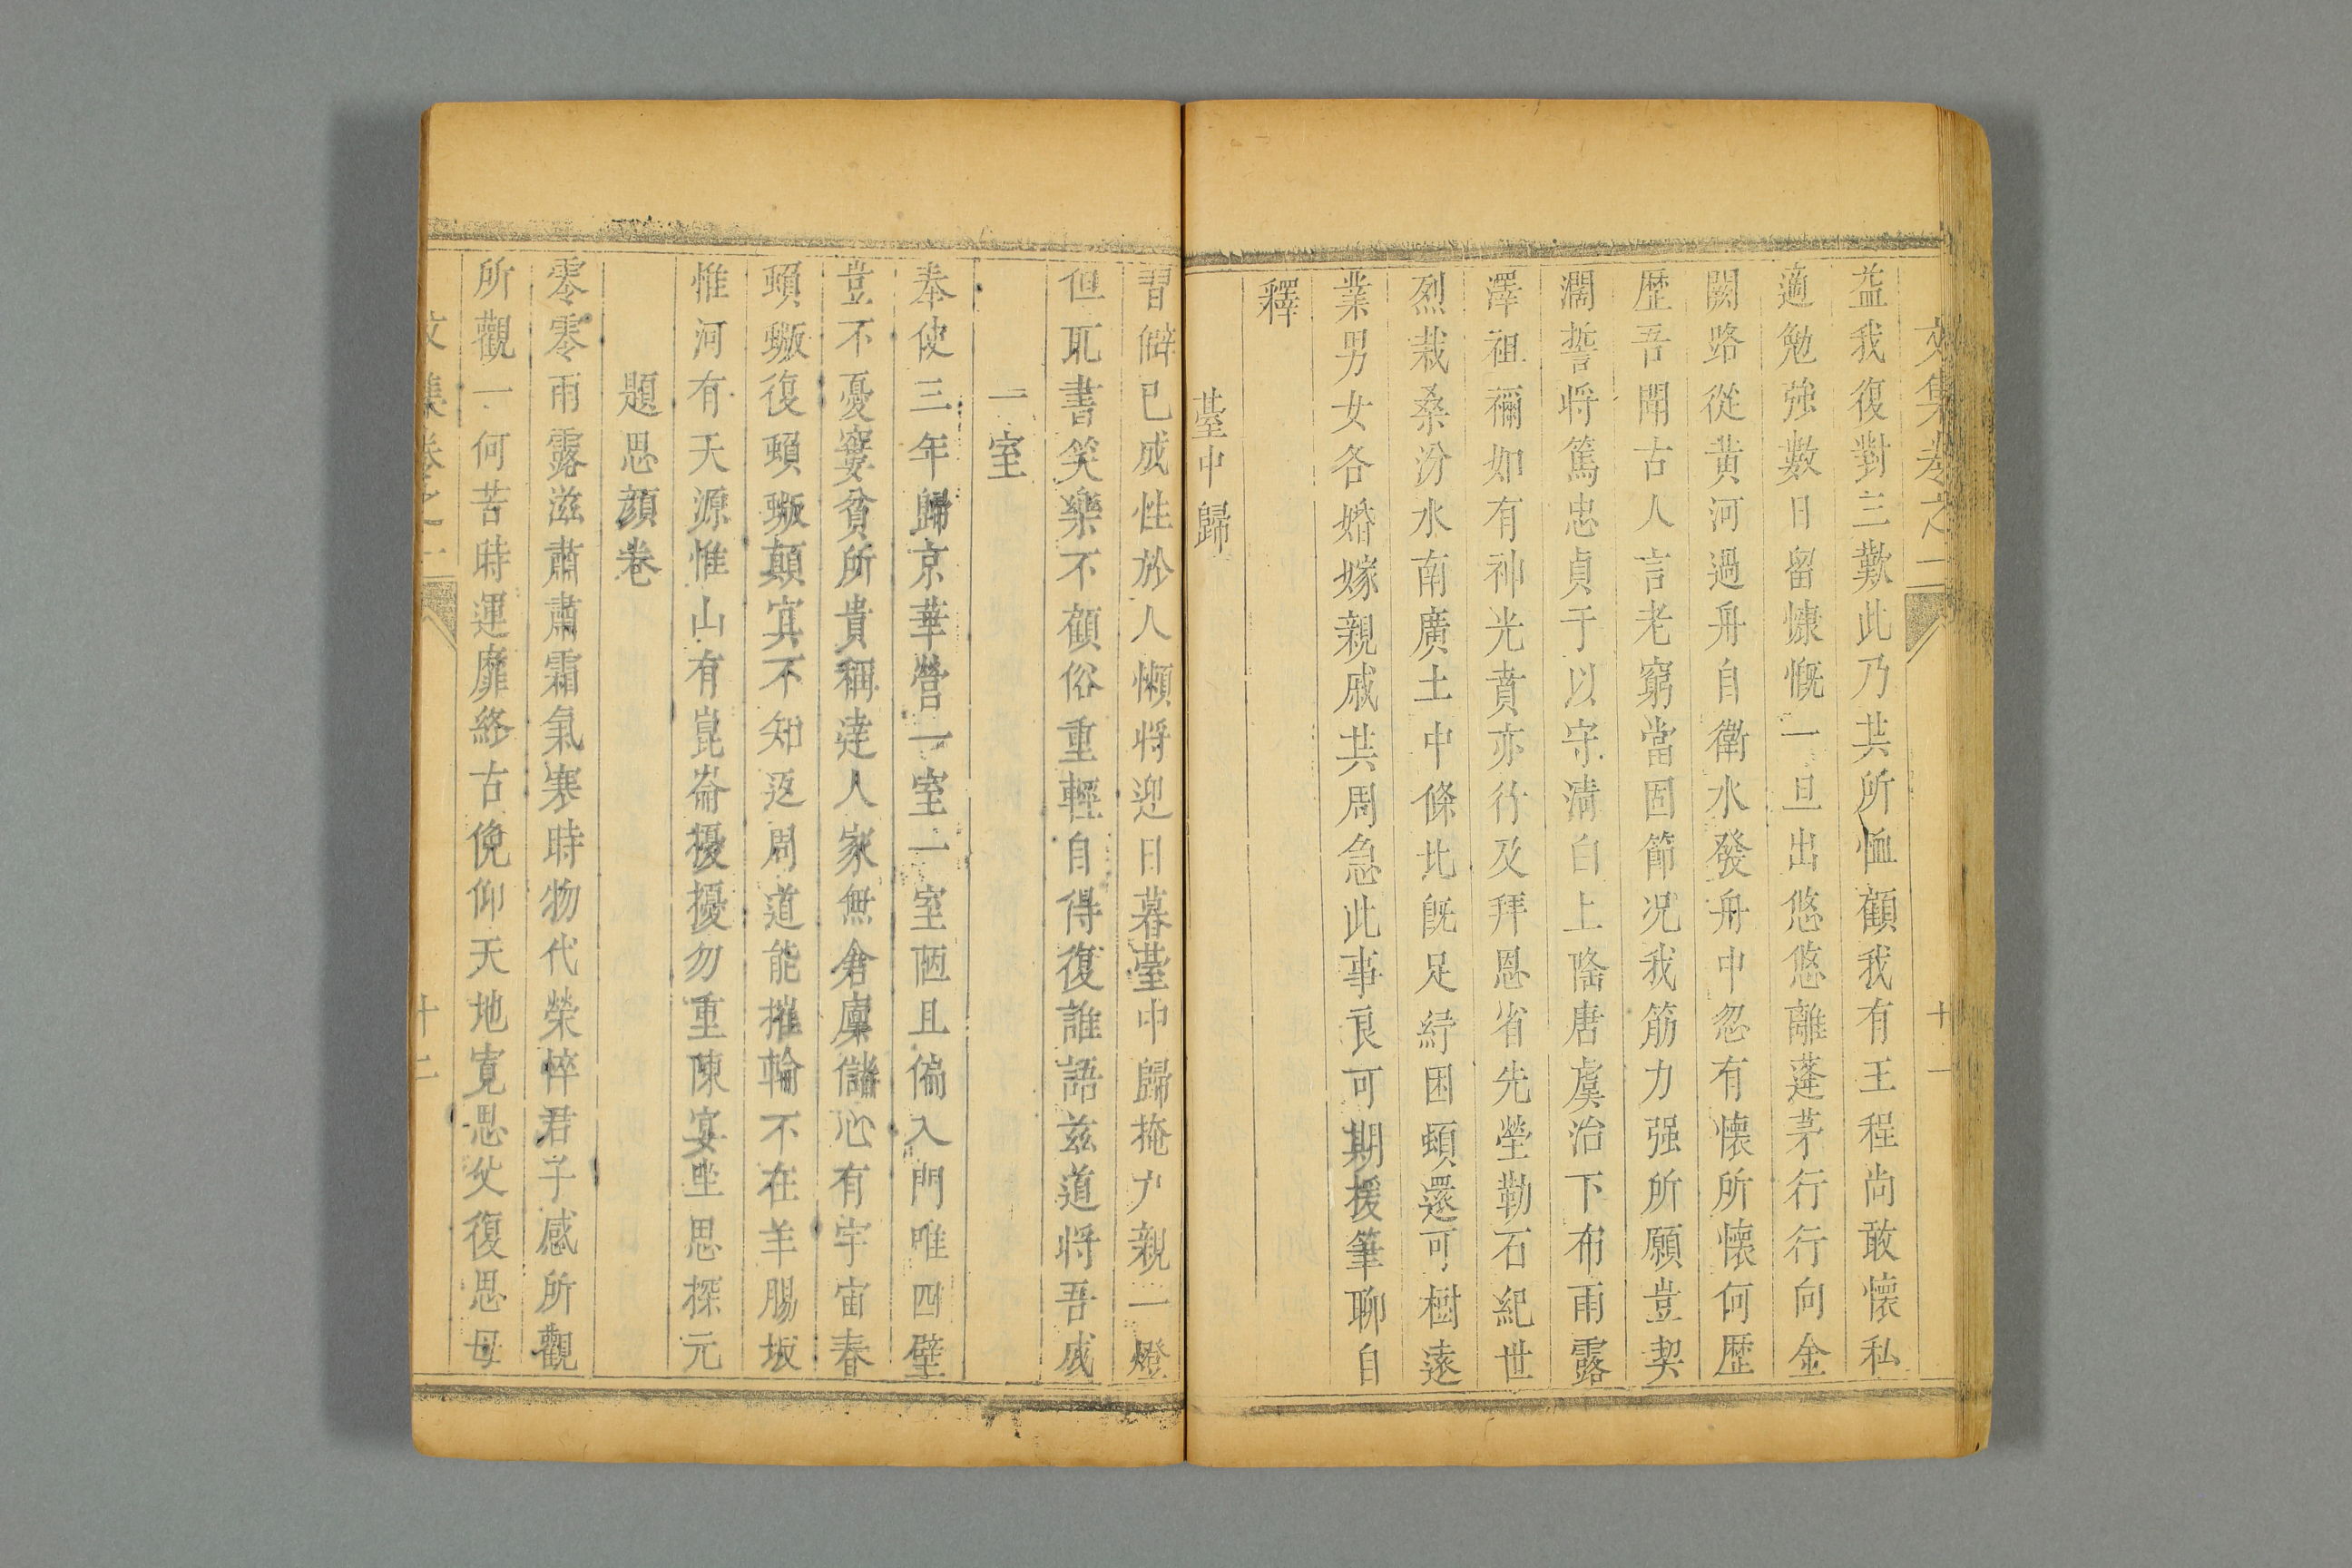 文集卷之二
十一
益我復對三歎此乃共所恤顧我有王程尚敢懷私
適勉強數日留慷慨一旦出悠悠離蓬茅行行向金
闕路從黃河過舟自衛水發舟中忽有懷所懷何歷
歷吾聞古人言老窮當固節况我筋力强所願豈契
濶誓将篤忠貞于以守清白上隂唐虞治下布雨露
澤祖禰如有神光賁亦行及拜恩省先塋勒石紀世
烈栽桑汾水南廣土中條北既足紓困頓還可樹遠
業男女各婚嫁親戚共周急此事良可期援筆聊自
釋
臺中歸
習僻已成性於人懶將迎日暮臺中歸掩户親一燈
但耽書笑樂不顧俗重輕自得復誰語兹道将吾成
一室
奉使三年歸京華營一室一室陋且偏入門唯四壁
豈不憂窶貧所貴稱達人家無倉廩儲心有宇宙春
頭顱復頭顱顛寘不知返周道能摧輪不在羊腸坂
惟河有天源惟山有崑崙擾擾勿重陳宴坐思探元
題思顔卷
零零雨露滋肅肅霜氣寒時物代榮悴君子感所觀
所觀一何苦時運靡終古俛仰天地寛思父復思母
文集卷之二
十二